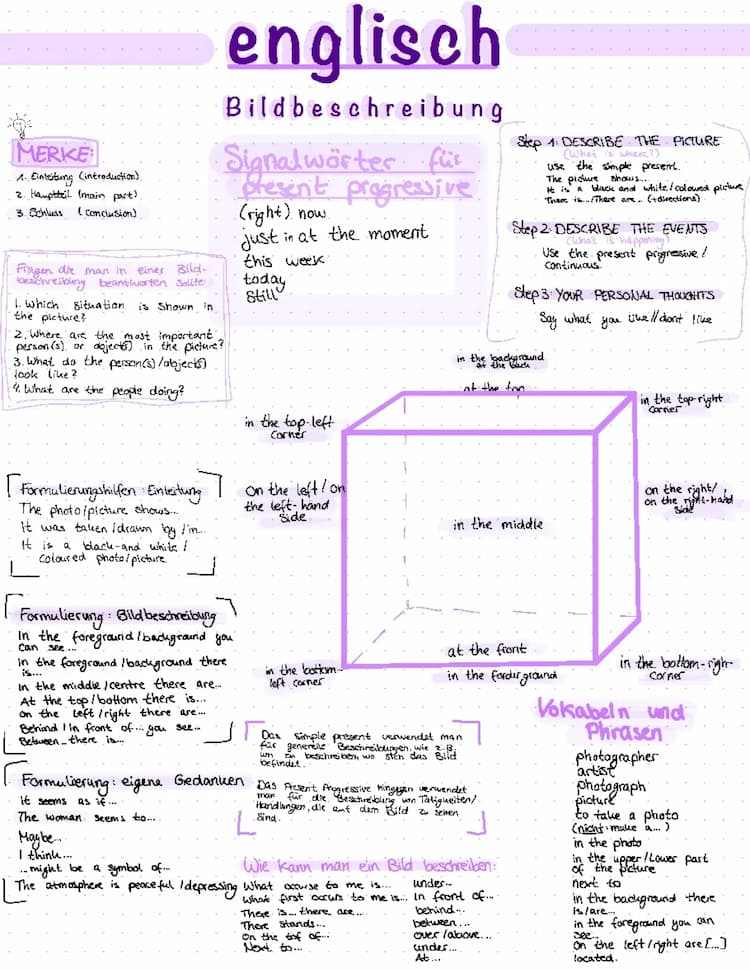 englisch
Bildbeschreibung
MERKE:
1. Einleitung (introduction)
2. Hauptteil (main part)
3. Schluss (conclusion)
Fragen die man in einer Bild-
beschreibung beantworten sollte
1. Which situation is shown in
the picture?
2. Where are the most important
person(s) or object(s) in the picture?
3. What do the person(s)/object(s)
look like?
4. What are the people doing?
Signalwörter für
present progressive
(right) now
just in at the moment
this week
today
still
Step 1: DESCRIBE THE PICTURE
(What is where?)
use the simple present.
The picture shows...
It is a black and white/coloured picture
There is.../There are... (+directions)
Step 2: DESCRIBE THE EVENTS
(What is happening)
Use the present progressive/
continuous.
Step 3: YOUR PERSONAL THOUGHTS
Say what you like//dont like
in the background
at the back
at the top
in the top-left
corner
in the top-right
corner
on the left/on
the left-hand
side
in the middle
on the right/
on the right-hand
side
at the front
in the forderground
in the bottom-
left corner
in the bottom-righ-
corner
Formulierungshilfen: Einleitung
The photo/picture shows...
It was taken/drawn by/in...
It is a black-and white/
coloured photo/picture
Formulierung: Bildbeschreibung
In the foreground/background you
can see...
in the foreground/background there
is...
In the middle/centre there are...
At the top/bottom there is...
on the left/right there are...
Behind/In front of... you see..
Between... there is...
Formulierung: eigene Gedanken
It seems as if...
The woman seems to...
Maybe...
I think...
...might be a symbol of...
The atmosphere is peaceful/depressing
Das simple present verwendet man
für generelle Beschreibungen, wie z.B.
um zu beschreiben, wo sich das Bild
befindet.
Das Present Progressive hingegen verwendet
man für die Beschreibung von Tätigkeiten/
Handlungen, die auf dem Bild zu sehen
sind.
Wie kann man ein Bild beschreiben:
What occurse to me is...
What first occurs to me is...
There is... there are...
There stands...
On the tof of...
Next to...
under...
In front of...
behind...
between...
over/above...
under...
At...
Vokabeln und
Phrasen
photographer
artist
photograph
picture
to take a photo
(nicht: make a...)
in the photo
in the upper/lower part
of the picture
next to
in the background there
is/are...
in the foreground you can
see...
on the left/right are[...]
located.